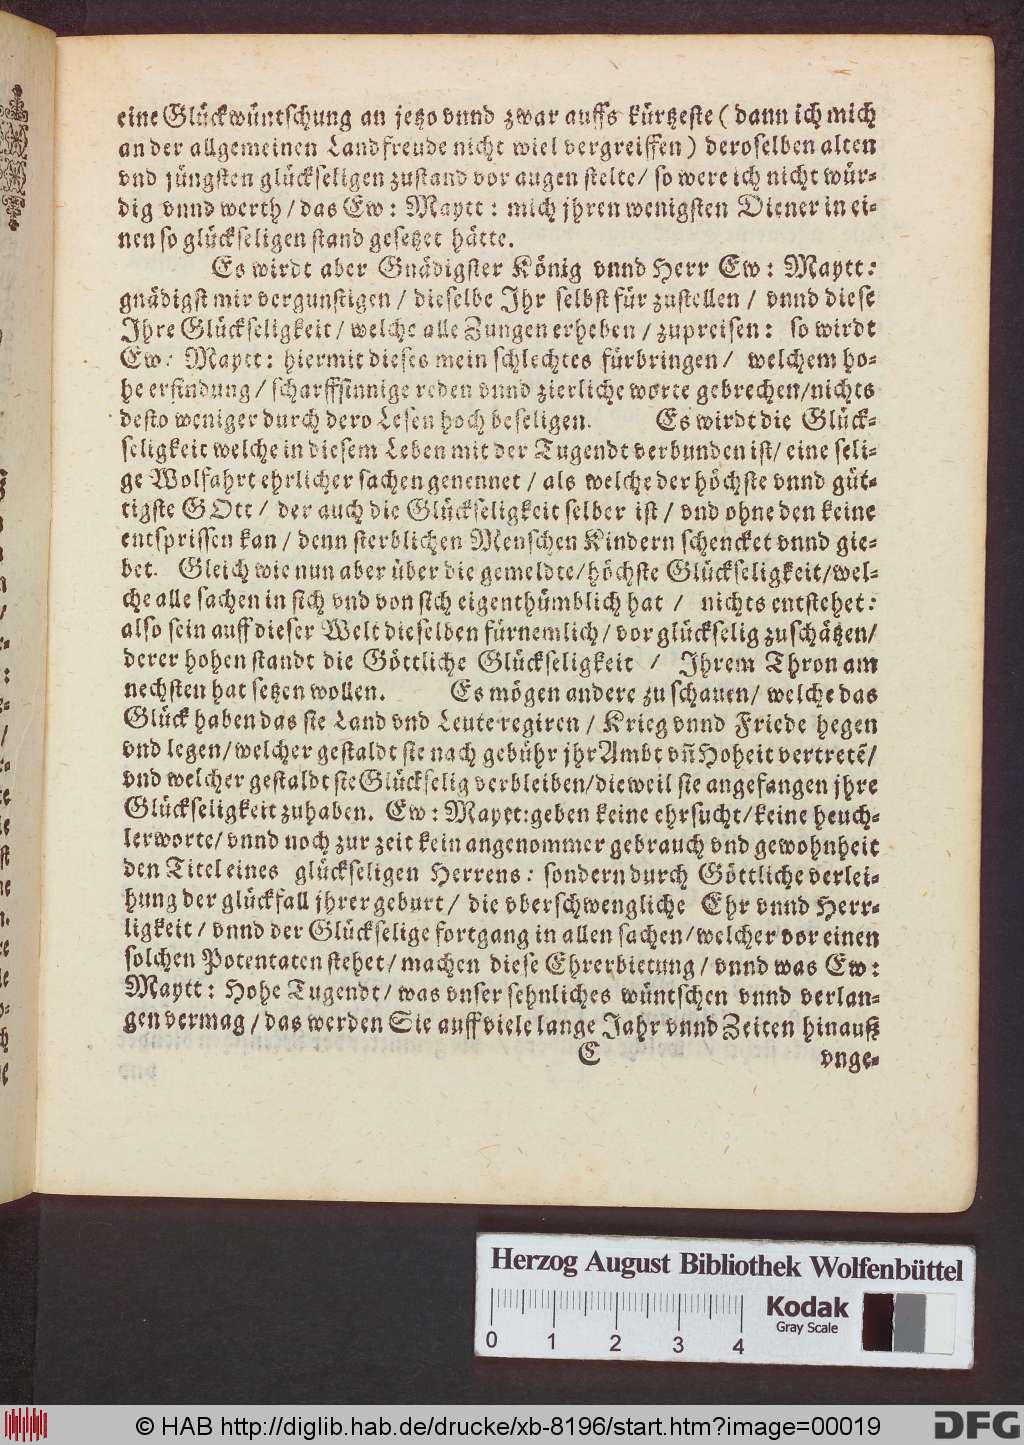 eine Glückwüntschung an jetzo vnnd zwar auffs kürtzeste ( dann ich mich
an der allgemeinen Landfreude nicht wiel vergreiffen ) deroselben alten
vnd jüngsten glückseligen zustand vor augen stelte/ so were ich nicht wür-
dig vnnd werth / das Ew: Maytt: mich jhren wenigsten Diener in ei-
nen so glückseligen stand gesetzet hätte.
Es wirdt aber Gnädigster König vnnd Herr Ew: Maytt:
gnädigst mir vergunstigen / dieselbe Ihr selbst für zustellen / vnnd diese
Ihre Glückseligkeit / welche alle Zungen erheben / zupreisen: so wirdt
Ew: Maytt: hiermit dieses mein schlechtes fürbringen/ welchem ho-
he erfindung / scharffsinnige reden vnnd zierliche worte gebrechen/nichts
desto weniger durch dero Lesen hoch beseligen. Es wirdt die Glück-
seligkeit welche in diesem Leben mit der Tugendt verbunden ist/ eine seli-
ge Wolfahrt ehrlicher sachen genennet / als welche der höchste vnnd güt-
tigste GOtt / der auch die Glückseligkeit selber ist / vnd ohne den keine
entsprissen kan / denn sterblichen Menschen Kindern schencket vnnd gie-
bet. Gleich wie nun aber über die gemeldte/höchste Glückseligkeit/wel-
che alle sachen in sich vnd von sich eigenthümblich hat / nichts entstehet:
also sein auff dieser Welt dieselben fürnemlich/ vor glückselig zuschätzen/
derer hohen standt die Göttliche Glückseligkeit / Ihrem Thron am
nechsten hat setzen wollen. Es mögen andere zu schauen/ welche das
Glück haben das sie Land vnd Leute regiren / Krieg vnnd Friede hegen
vnd legen/welcher gestaldt sie nach gebühr jhr Ambt vñ Hoheit vertretẽ/
vnd welcher gestaldt sie Glückselig verbleiben/dieweil sie angefangen jhre
Glückseligkeit zuhaben. Ew: Maytt:geben keine ehrsucht/keine heuch-
lerworte/ vnnd noch zur zeit kein angenommer gebrauch vnd gewohnheit
den Titel eines glückseligen Herrens: sondern durch Göttliche verlei-
hung der glückfall jhrer geburt / die vberschwengliche Ehr vnnd Herr-
ligkeit / vnnd der Glückselige fortgang in allen sachen/welcher vor einen
solchen Potentaten stehet/ machen diese Ehrerbietung / vnnd was Ew:
Maytt: Hohe Tugendt/ was vnser sehnliches wüntschen vnnd verlan-
gen vermag / das werden Sie auff viele lange Jahr vnnd Zeiten hinauß
C vnge-
Herzog August Bibliothek Wolfenbüttel
0 1 2 3 4
Kodak
Gray Scale
© HAB http://diglib.hab.de/drucke/xb-8196/start.htm?image=00019
DFG